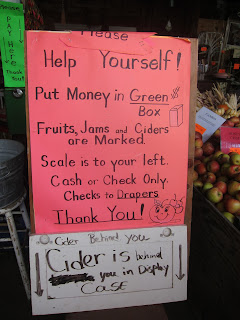 Please
PAY
Here
Thank
You!
Please
Help Yourself!
Put Money in Green
Box
$
Fruits, Jams and Ciders
are Marked.
Scale is to your left.
Cash or Check Only.
Checks to Drapers
Thank You!
Cider Behind You
Cider is behind
you in Display
Case